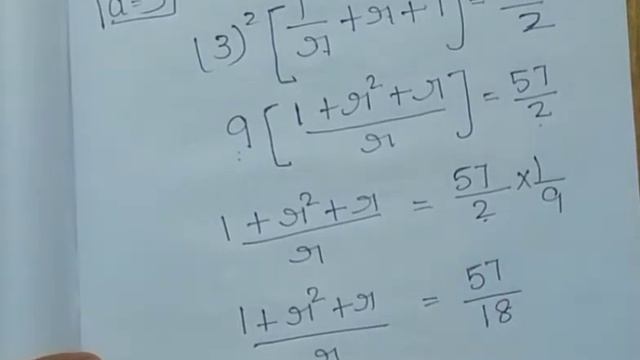 a=3
(3)² [1/r + r + 1] = 57/2
9 [(1 + r² + r)/r] = 57/2
(1 + r² + r)/r = 57/2 × 1/9
(1 + r² + r)/r = 57/18